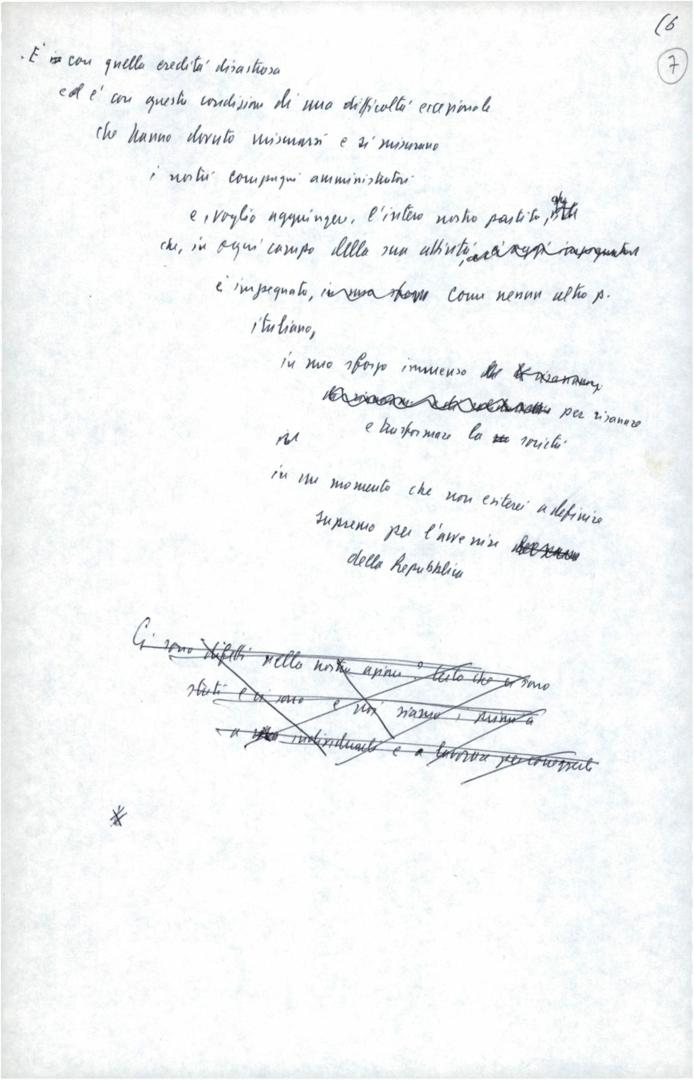 (6
7
. E' con quella eredità disastrosa
ed è con queste condizioni di una difficoltà eccezionale
che hanno dovuto misurarsi e si misurano
i nostri compagni amministratori
e, voglio aggiungere, l'intero nostro partito,
che, in ogni campo della sua attività,
è impegnato, come nessun altro p.
italiano,
in uno sforzo immenso
per risanare
e trasformare la società
in un momento che non esiterei a definire
supremo per l'avvenire
della Repubblica
Ci sono difetti nella nostra azione? Certo che ci sono
stati e ci sono e noi siamo i primi a
a individuarli e a lavorare per correggerli